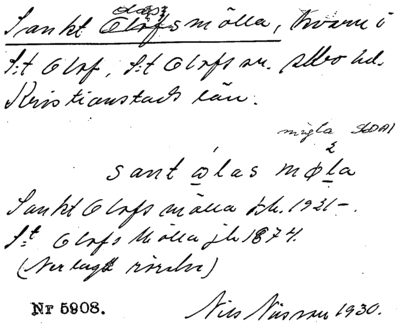 Olofs
Sankt Olofsmölla, kvarn i
S:t Olof, S:t Olofs sn. Albo hd.
Kristianstads län.
møgla SOAI
2
sant ólas møla
Sankt Olofs mölla jb. 1921–.
S:t Olofs Mölla jb 1874.
(Nerlagd rörelse)
Nr 5908. Nils Nilsson 1930.